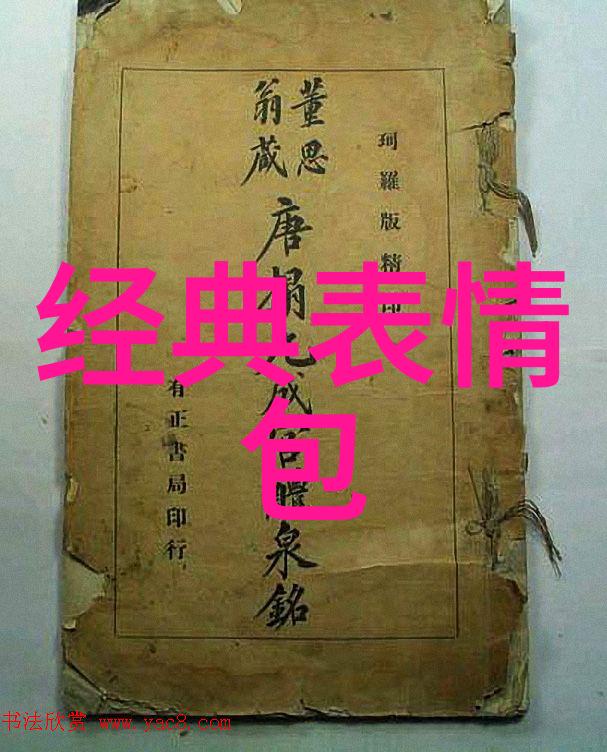 珂羅版精印
董思
翁藏
唐搨九成宮醴泉銘
有正書局印行
经典表情
包
书法欣赏 www.yac8.com